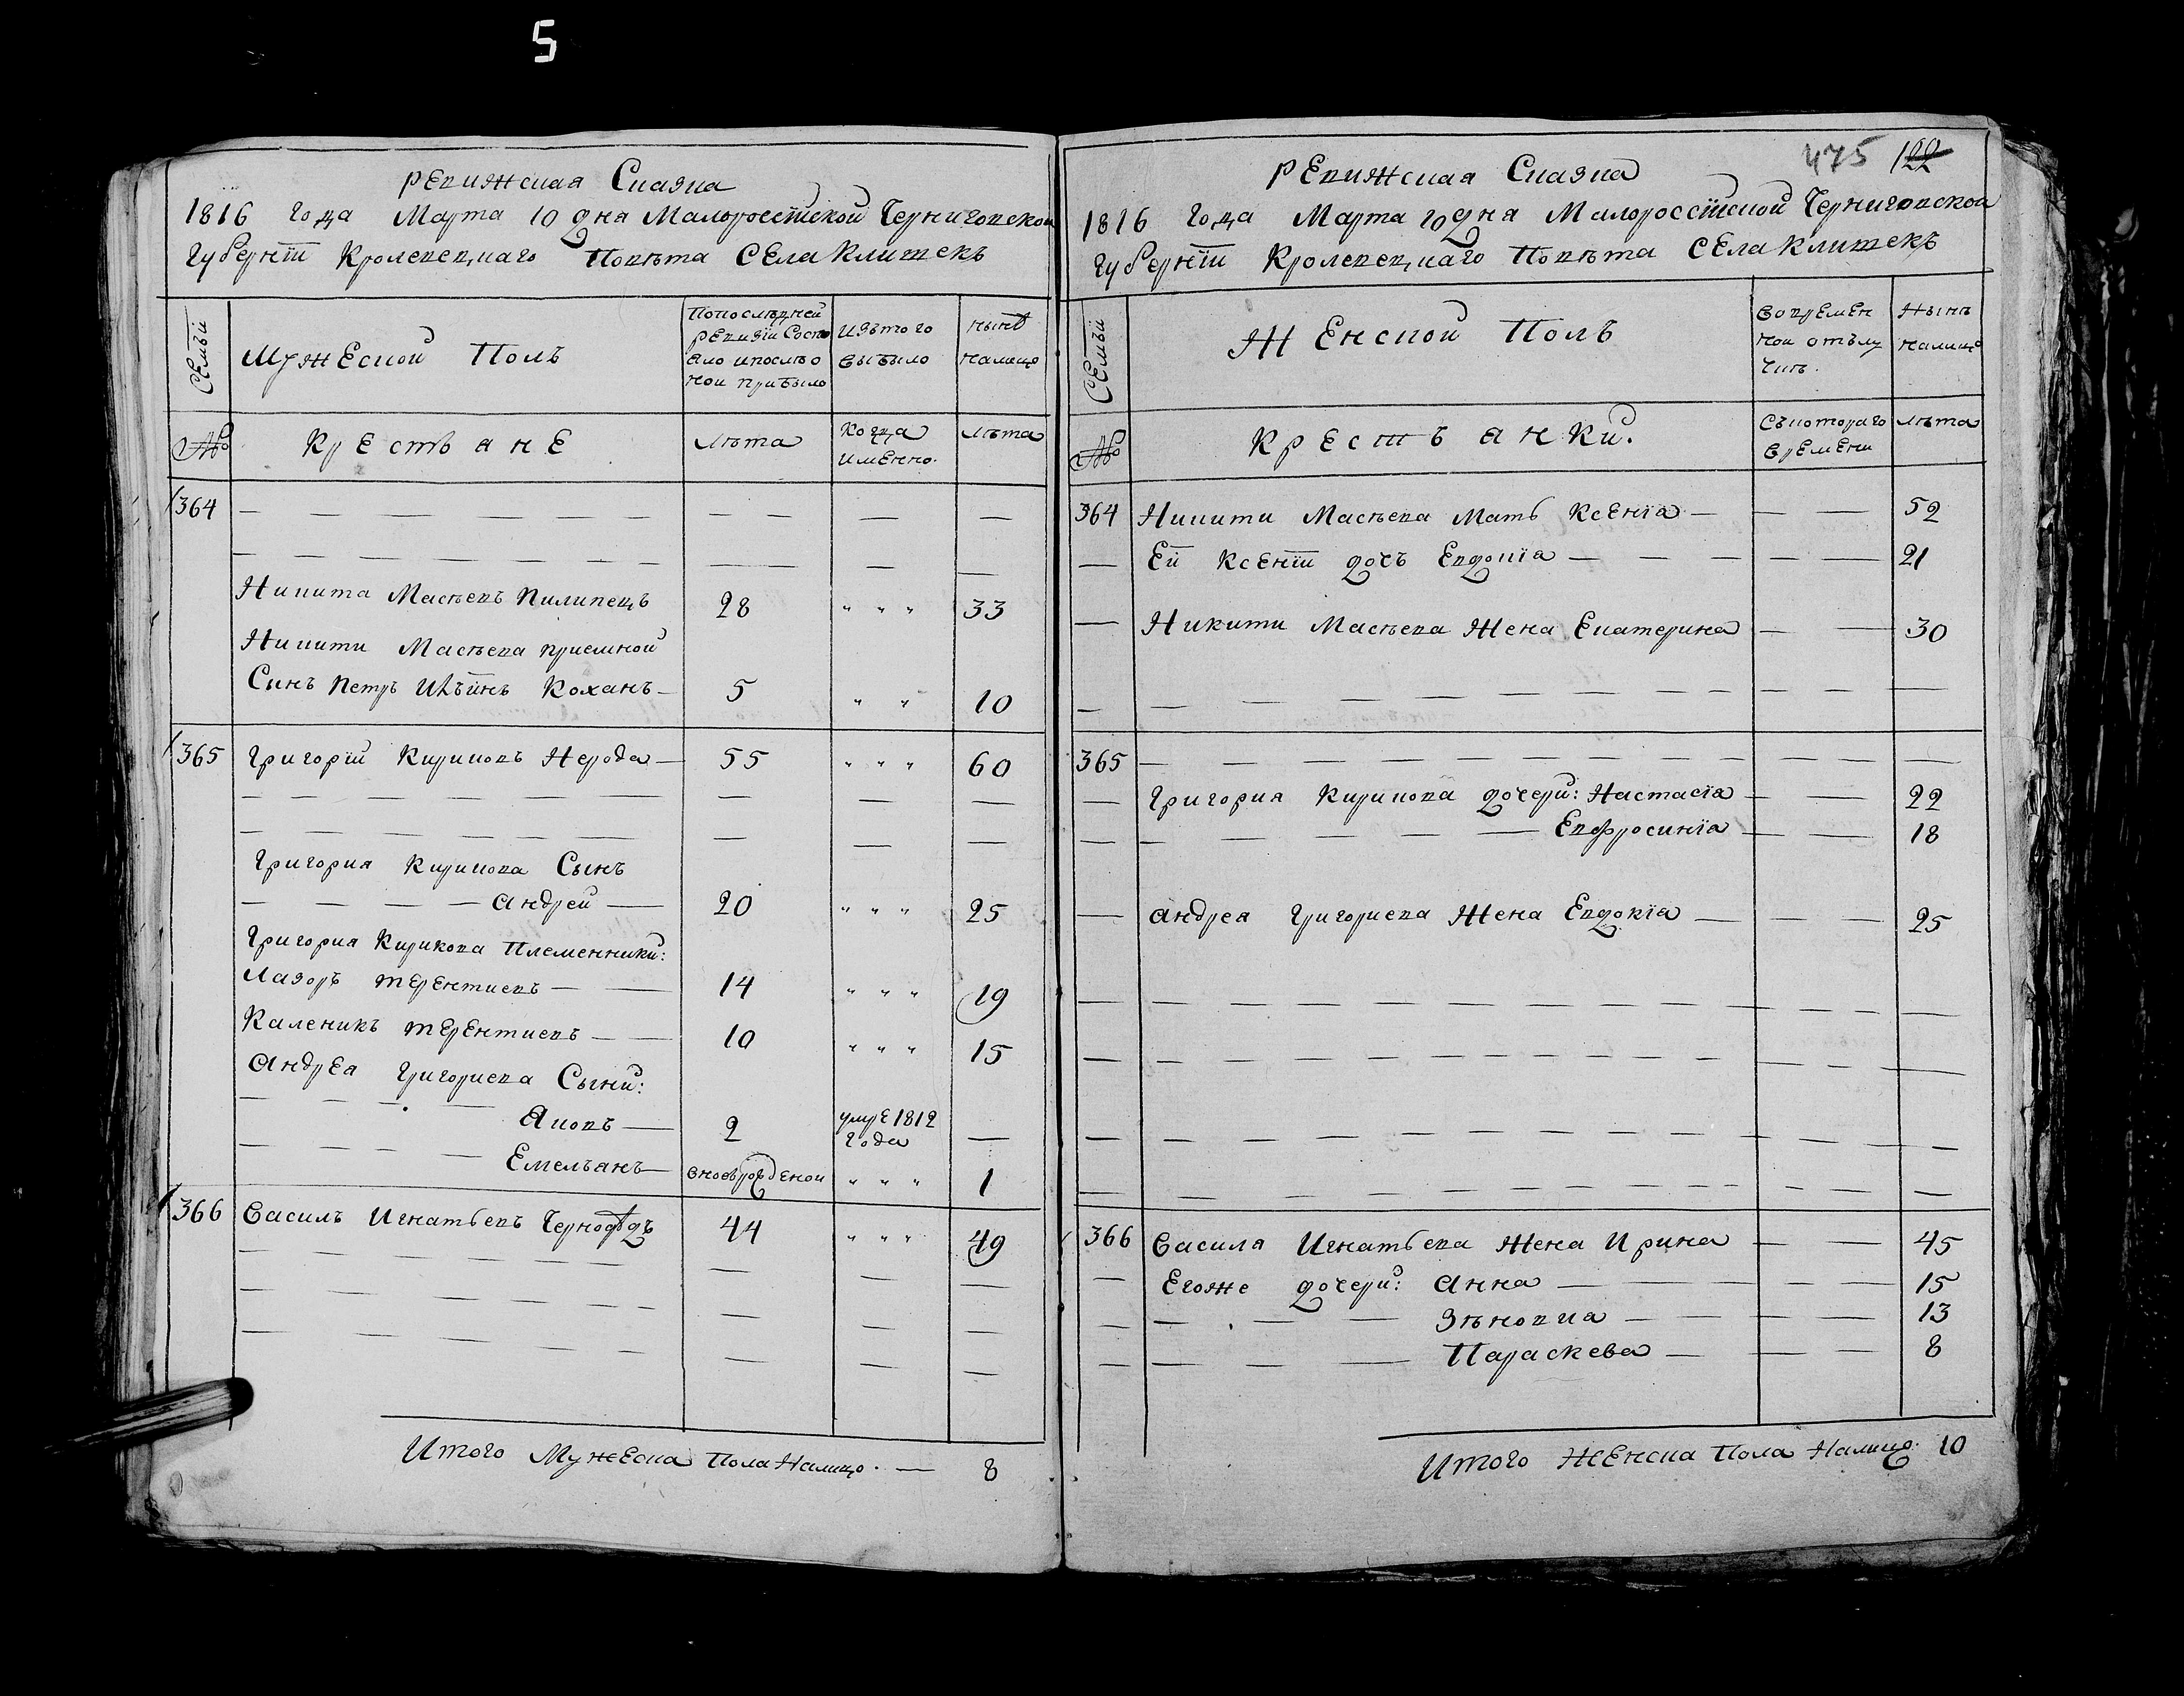 5
Ревижская Сказка
1816 года Марта 10 дня Малоросстйской Черниговской
Губернїи Кролевецкаго Повѣта Села Клишекъ
Семъи
Мужеской Полъ
Попослѣдней
Ревизїи Состо
яло ипослѣ о
ной прибыло
Изътого
выбыло
нынѣ
налицо
№
Крестьяне
лѣта
Когда
имЕнно.
Лѣта
364
Никита Масѣевъ Пилипецъ 28 " " " 33
Никити Масѣева приемной
Синъ Петръ Илъинъ Коханъ 5 " " 10
365 Григорїй Кириковъ Нерода 55 " " " 60
Григория Кирикова Сынъ
Андрей 20 " " " 25
Григория Кирикова Племенники:
Лазоръ терентиевъ 14 " " " 19
Каленикъ терентиевъ 10 " " " 15
Андреа Григориева Сыни:
Яковъ 2 умре 1812
года
Емелъанъ вновърожденой " " " 1
366 Василъ Игнатьевъ Чернодѣдъ 44 " " " 49
Итого Мужеска Пола Налицо. 8
475 122
Ревижская Сказка
1816 года Марта 10 дня Малоросстйской Черниговской
Губернїи Кролевецкаго Повѣта Села Клишекъ
Семъи
Женской Полъ
Вовремен
ной отълу
чкѣ.
Нынѣ
налицо
№
Крестъанки.
Съкотораго
времени
лѣта
364 Никити Масѣева Мать Ксенїа 52
Ей Ксенїи дочъ Евдокїа 21
Никити Масѣева Жена Екатерина 30
365
Григория Кирикова дочери: Настасїа 22
Евфросинїа 18
Андреа Григориева Жена Евдокїа 25
366 Василя Игнатьева Жена Ирина 45
Егоже дочери: Анна 15
Зѣновиа 13
Параскева 8
Итого Женска Пола Налицо. 10